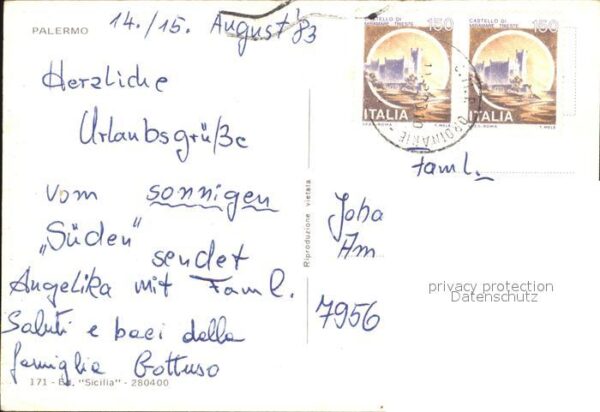 PALERMO
14./15. August '83
Herzliche
Urlaubsgrüße
vom sonnigen
„Süden" sendet
Angelika mit Faml.
Saluti e baci dalla
famiglia Gottuso
171 - Ed. "Sicilia" - 280400
Riproduzione vietata
CASTELLO DI
MIRAMARE TRIESTE
150
ITALIA
I.P.S.-ROMA
CASTELLO DI
MIRAMARE TRIESTE
150
ITALIA
I.P.S.-ROMA T. MELE
ORDINARIE
Faml.
Joha
Am
7956
privacy protection
Datenschutz